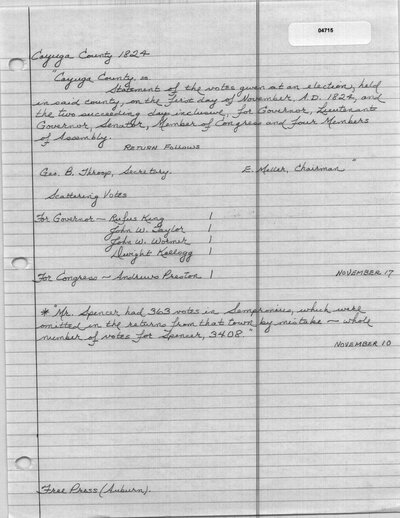 04715
Cayuga County 1824
"Cayuga County, ss
Statement of the votes given at an election, held
in said county, on the first day of November, A.D. 1824, and
the two succeeding days inclusive, for Governor, Lieutenant
Governor, Senator, Member of Congress and Four Members
of Assembly.
Return Follows
Geo. B. Throop, Secretary. E. Miller, Chairman"
Scattering Votes
For Governor - Rufus King 1
John W. Taylor 1
John W. Worner 1
Dwight Kellogg 1
For Congress - Andrews Preston 1 November 17
* "Mr. Spencer had 363 votes in Sempronius, which were
omitted in the returns from that town by mistake - whole
number of votes for Spencer, 3408."
November 10
Free Press (Auburn).